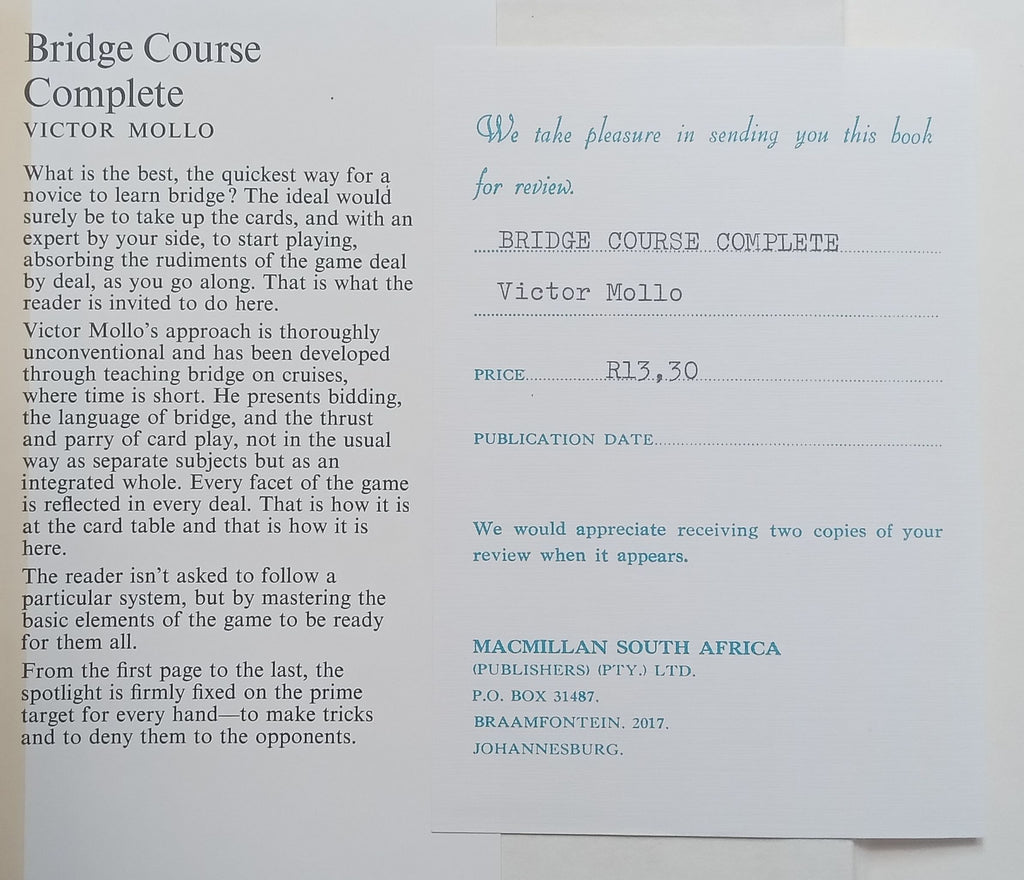 Bridge Course
Complete
VICTOR MOLLO
What is the best, the quickest way for a
novice to learn bridge? The ideal would
surely be to take up the cards, and with an
expert by your side, to start playing,
absorbing the rudiments of the game deal
by deal, as you go along. That is what the
reader is invited to do here.
Victor Mollo's approach is thoroughly
unconventional and has been developed
through teaching bridge on cruises,
where time is short. He presents bidding,
the language of bridge, and the thrust
and parry of card play, not in the usual
way as separate subjects but as an
integrated whole. Every facet of the game
is reflected in every deal. That is how it is
at the card table and that is how it is
here.
The reader isn't asked to follow a
particular system, but by mastering the
basic elements of the game to be ready
for them all.
From the first page to the last, the
spotlight is firmly fixed on the prime
target for every hand—to make tricks
and to deny them to the opponents.
We take pleasure in sending you this book
for review.
BRIDGE COURSE COMPLETE
Victor Mollo
PRICE R13,30
PUBLICATION DATE
We would appreciate receiving two copies of your
review when it appears.
MACMILLAN SOUTH AFRICA
(PUBLISHERS) (PTY.) LTD.
P.O. BOX 31487,
BRAAMFONTEIN. 2017.
JOHANNESBURG.